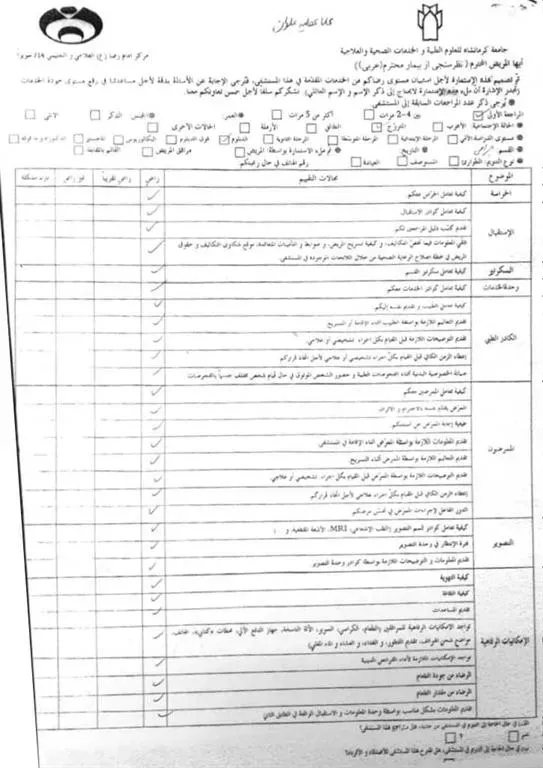 جامعة كرمانشاه للعلوم الطبية و الخدمات الصحية والعلاجية
مركز امام رضا (ع) العلاجي و التعليمي
أيها المريض المحترم ( نظرسنجی از بیمار محترم(عربی))
تم تصميم هذه الإستمارة لأجل استبيان مستوى رضاكم عن الخدمات المقدمة في هذا المستشفى، فنرجى الإجابة عن الأسئلة بدقة لأجل مساعدتنا في رفع مستوى جودة الخدمات
(تجدر الإشارة أن ملء هذه الإستمارة لا تحتاج إلى ذكر الإسم و الإسم العائلي) نشكركم سلفا لأجل حسن تعاونكم معنا.
يُرجى ذكر عدد المراجعات السابقة إلى المستشفى:
المراجعة الأولى بين 4-2 مرات أكثر من 5 مرات العمر: الجنس: الذكر الأنثى
الحالة الإجتماعية: الأعزب المتزوج الطلاق الأرملة حالات الأخرى
مستوى الدراسة: الأمي المرحلة الإبتدائية المرحلة المتوسطة المرحلة الثانوية الدبلوم فوق الدبلوم البكالوريوس الماجستير
القسم: التاريخ: تم ملء الاستمارة بواسطة: المريض مرافق المريض القائم بالمقابلة
نوع التنويم: الطوارئ المستوصف العيادة رقم الهاتف في حال رغبتكم
الموضوع مجالات التقييم راضٍ راضٍ تقريباً غير راضٍ
الحراسة كيفية تعامل الحراس معكم
الإستقبال كيفية تعامل كوادر الاستقبال
تقديم كتيب دليل المراجعين لكم
تلقي المعلومات فيما يخص التكاليف، و كيفية تسريح المريض، و ضوابط و التأمينات المتعاقدة، موقع شكاوى التكاليف و حقوق
المريض في خطة اصلاح الرعاية الصحية من خلال اللائحات الموجودة في المستشفى
السكرتير كيفية تعامل سكرتير القسم
وحدة الخدمات كيفية تعامل كوادر الخدمات معكم
الكادر الطبي كيفية تعامل الطبيب و تقديم نفسه إليكم
تقديم التعاليم اللازمة بواسطة الطبيب أثناء الإقامة أو التسريح
تقديم التوضيحات اللازمة قبل القيام بكل اجراء تشخيصي أو علاجي
إعطاء الزمن الكافي قبل القيام بكل اجراء تشخيصي أو علاجي لأجل اتخاذ قراركم
صيانة الخصوصية البدنية أثناء الفحوصات الطبية و حضور الشخص الموثوق في حال قيام شخص مختلف جنسياً بالفحوصات
الممرضون كيفية تعامل الممرضين معكم
الممرض يقدم نفسه بالاحترام و الاكرام
كيفية إجابة الممرض عن أسئلتكم
تقديم المعلومات اللازمة بواسطة الممرض أثناء الإقامة في المستشفى
تقديم التعاليم اللازمة بواسطة الممرض أثناء التسريح
تقديم التوضيحات اللازمة بواسطة الممرض قبل القيام بكل اجراء تشخيصي أو علاجي
إعطاء الزمن الكافي قبل القيام بكل اجراء علاجي لأجل اتخاذ قراركم
الدور الفاعل لإجراءات الممرض في تحسّن مرضكم
التصوير كيفية تعامل كوادر قسم التصوير (الطب الإشعاعي، MRI، الأشعة المقطعية، و )
فترة الإنتظار في وحدة التصوير
تقديم المعلومات و التوضيحات اللازمة بواسطة كوادر وحدة التصوير
الإمكانيات الرفاهية كيفية التهوية
كيفية النظافة
تقديم المساعدات
تواجد الامكانيات الرفاهية للمرافقين (الطعام، الكراسي، السرير، الآلة الناسخة، جهاز الدفع الآلي، الهاتف،
تواجد الإمكانيات اللازمة لأداء الفرائض الدينية
الرضاء من جودة الطعام
الرضاء من مقدار الطعام
تقديم المعلومات بشكل مناسب بواسطة وحدة المعلومات و الاستقبال الواقعة في الطابق الثاني
نعم ؟ لا